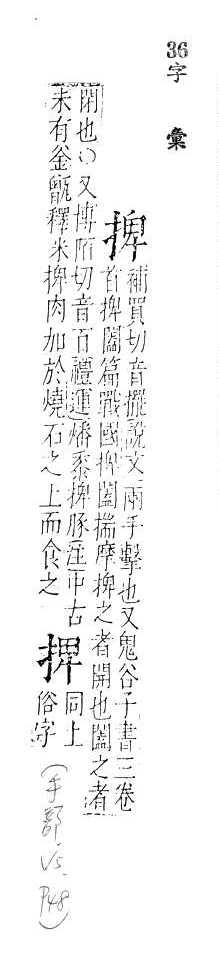 36字 彙
捭
補買切音擺說文兩手擊也又鬼谷子書三卷
首捭闔篇戰國捭闔揣摩捭之者開也闔之者
閉也○又博陌切音百禮運燔黍捭豚註中古
未有釜甑釋米捭肉加於燒石之上而食之
同上
俗字
(手部. V5. P48)